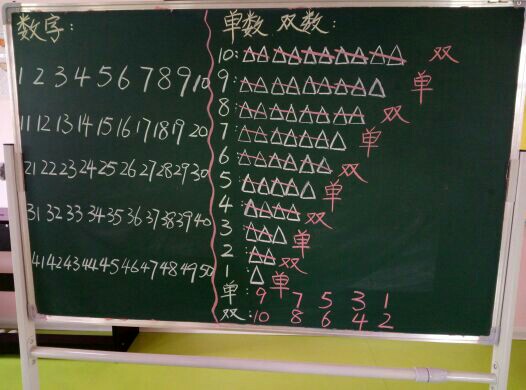 数字:
1 2 3 4 5 6 7 8 9 10
11 12 13 14 15 16 17 18 19 20
21 22 23 24 25 26 27 28 29 30
31 32 33 34 35 36 37 38 39 40
41 42 43 44 45 46 47 48 49 50
单数 双数:
10: 双
9: 单
8: 双
7: 单
6: 双
5: 单
4: 双
3: 单
2: 双
1: 单
单: 9 7 5 3 1
双: 10 8 6 4 2